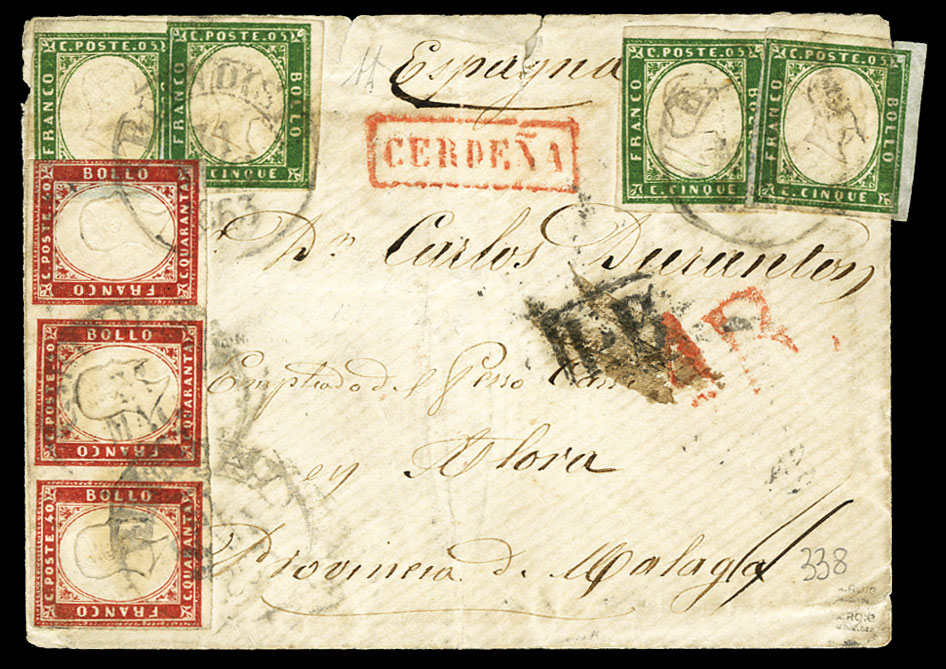 C. POSTE. 05
FRANCO
C. POSTE. 05
FRANCO
BOLLO
C. CINQUE
Espagna
CERDEÑA
C. POSTE. 05
FRANCO
C. CINQUE
C. POSTE. 05
FRANCO
BOLLO
C. CINQUE
BOLLO
C. POSTE. 40
C. QUARANTA
FRANCO
Dn Carlos Duranton
BOLLO
C. POSTE. 40
C. QUARANTA
FRANCO
Empleado del
en Alora
BOLLO
C. POSTE. 40
C. QUARANTA
FRANCO
Provincia de Malaga
338